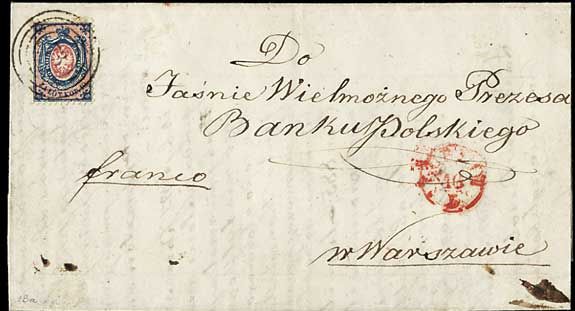 Do
Jaśnie Wielmożnego Prezesa
Banku Polskiego
franco
w Warszawie